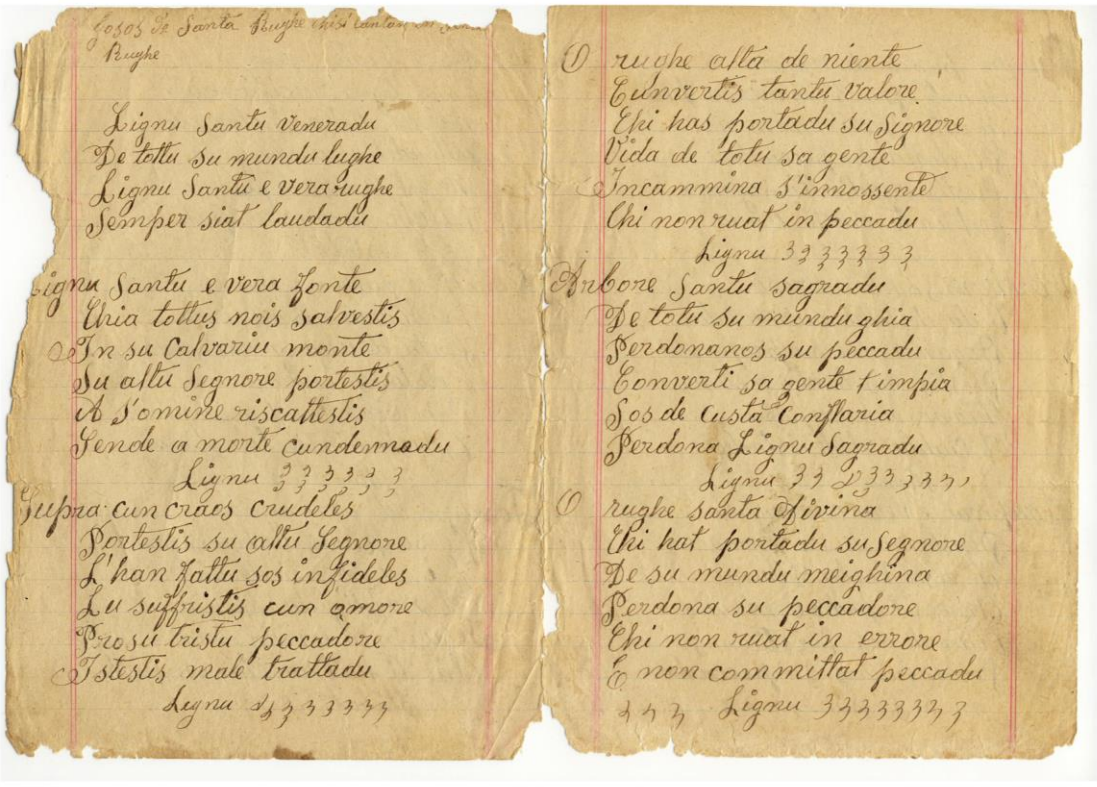 Gosos de Santa Rughe chisi cantan
Rughe
Lignu Santu veneradu
De tottu su mundu lughe
Lignu Santu e vera rughe
Semper siat laudadu
Lignu Santu e vera fonte
Chia tottus nois salvestis
In su Calvariu monte
Su altu Segnore portestis
A s'omine riscattestis
Sende a morte cundennadu
Lignu 3 3 3 3 3 3
Supra cun craos crudeles
Portestis su altu Segnore
L'han fattu sos infideles
Lu suffristis cun amore
Pro su tristu peccadore
Istestis male trattadu
Lignu 3 3 3 3 3 3 3
O rughe alta de niente
Cunvertis tantu valore
Chi has portadu su Signore
Vida de totu sa gente
Incammina s'innossente
Chi non ruat in peccadu
Lignu 3 3 3 3 3 3 3
Arbore Santu sagradu
De totu su mundu ghia
Perdonanos su peccadu
Converti sa gente impia
Sos de custa Conflaria
Perdona Lignu Sagradu
Lignu 3 3 3 3 3 3 3 3
O rughe santa Divina
Chi hat portadu su Segnore
De su mundu meighina
Perdona su peccadore
Chi non ruat in errore
E non committat peccadu
3 3 3 Lignu 3 3 3 3 3 3 3 3